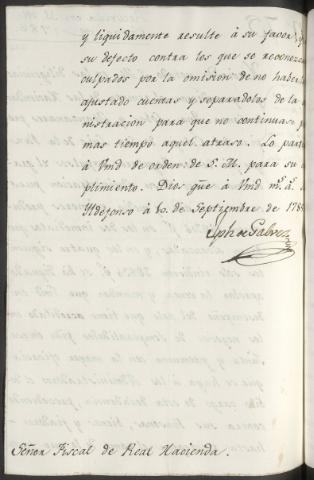 y liquidamente resulte à su favor, y
su defecto contra los que se reconozca
culpados por la omision de no haber
ajustado cuentas y separadolos de la
nistracion para que no continuase p
mas tiempo aquel atraso. Lo parti
à Vmd de orden de S. M. para su
plimiento. Dios gūe à Vmd m.s a.s
Yldefonso à 10. de Septiembre de 178
Jph de Galvez
Señor Fiscal de Real Hacienda.